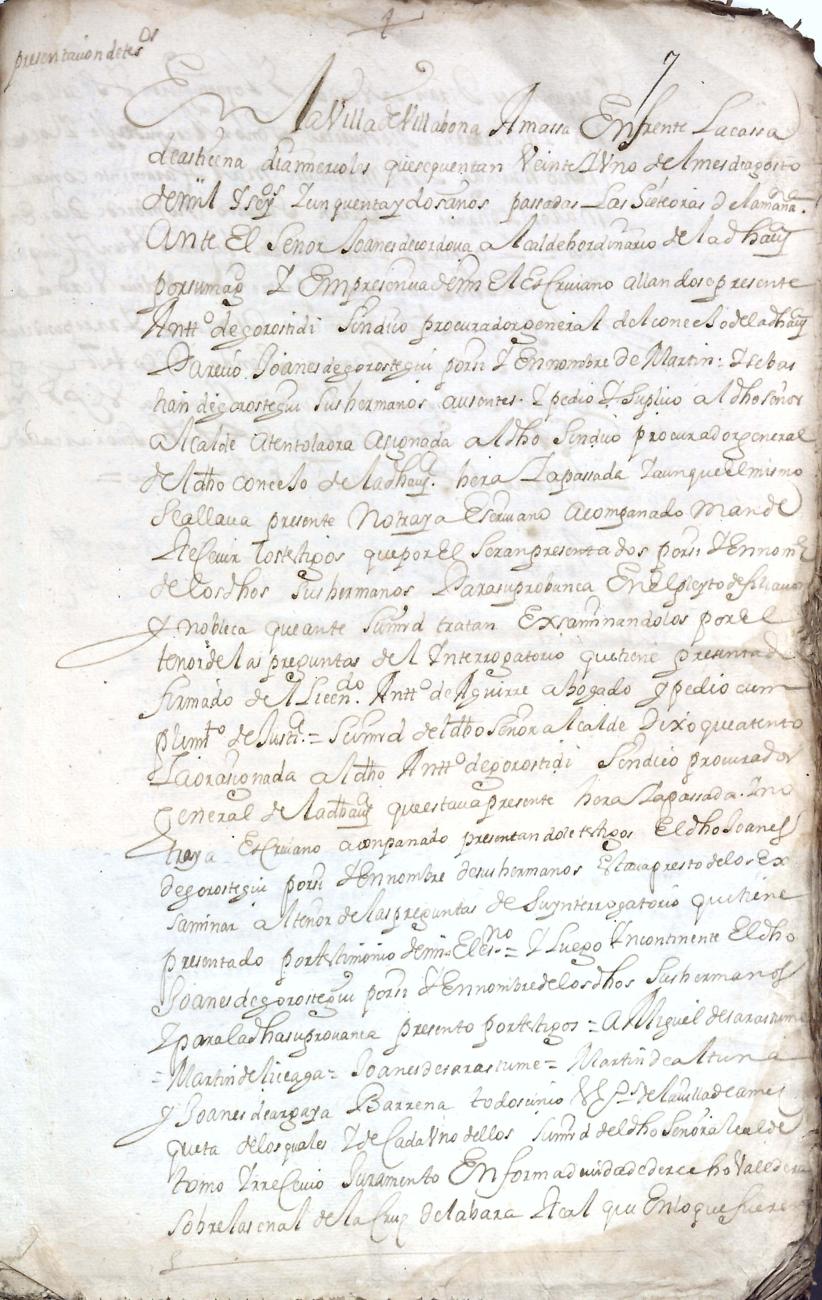 presentacion de tes^os
7
En la Villa de Villabona Amassa Enfrente La cassa
de asteena dia miercoles que se quentan Veinte Y Uno de el mes de agosto
de mil Y seys^os Y cinquenta y dos anos passadas Las siete oras de la mañana.
Ante El Señor Joanes de cordova alcalde hordinario de la dha uy^a
por su mag^d Y En presencia de mi El Escriviano allandose presente
Antt^o de gorostidi Sindico procurador general del concejo de la dha uy^a
Parecio Joanes de gorostegui por si Y En nombre de Martin: Y sebas
tian de gorostegui sus hermanos ausentes. Y pedio Y suplico al dho señor
alcalde atento la ora asignada al dho Sindico procurador general
del dho concejo de la dha uy^a. hera Ya passada Y aunque el mismo
se allava presente No traya Escriuano acompanado mande
Recevir Los testigos que por El seran presentados por si Y En nom^e
de los dhos sus hermanos Para su probanca En el pleyto de filiacion
y nobleca que ante su mrd tratan Exsaminandolos por El
tenor de las preguntas del Ynterrogatorio que tiene presentado
firmado del Licen^do. Antt^o de Aguirre abogado y pedio cum
plim^to de Justi^a = Su mrd del dho Señor alcalde Dixo que atento
La ora signada al dho Antt^o de gorostidi Sindico procurador
General de la dha uy^a que estava presente hera Ya passada. Y no
traya Escriuano aconpanado presentandole testigos El dho Joanes
de gorostegui por si Y En nombre de sus hermanos Estava presto de los Ex
saminar al tenor de las preguntas de su ynterrogatorio que tiene
presentado por testimonio de mi El es^no = Y Luego Yncontinente El dho
Joanes de gorostegui por si Y En nombre de los dhos sus hermanos
Y para la dha su provanca presento por testigos = a Miguel de sarastume
= Martin de liceaga = Joanes de sarastume = Martin de altuna
y Joanes de argaya Barrena todos cinco V^os de la villa de ames
queta de los quales Y de Cada Uno dellos su mrd del dho Señor alcalde
tomo Y rrecevio Juramento En forma devida de derecho Valedera
sobre la señal de la Cruz de la bara Real que En lo que fueren